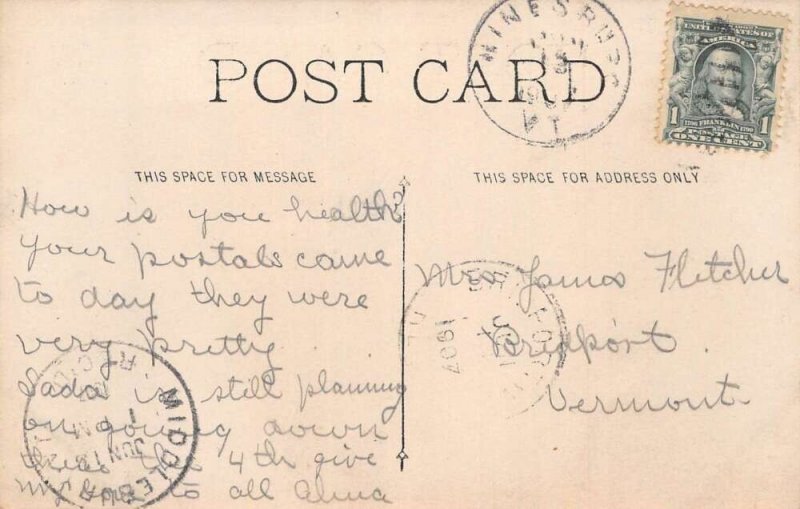 POST CARD
HINESBURG
VT
UNITED STATES OF
AMERICA
1 1
FRANKLIN
POSTAGE
ONE CENT
THIS SPACE FOR MESSAGE
How is you health?
your postals came
to day they were
very pretty
Sada is still planning
on going down
there the 4th give
my love to all Alma
MIDDLEB
JUN
THIS SPACE FOR ADDRESS ONLY
Mrs James Fletcher
Bridport.
Vermont.
1907